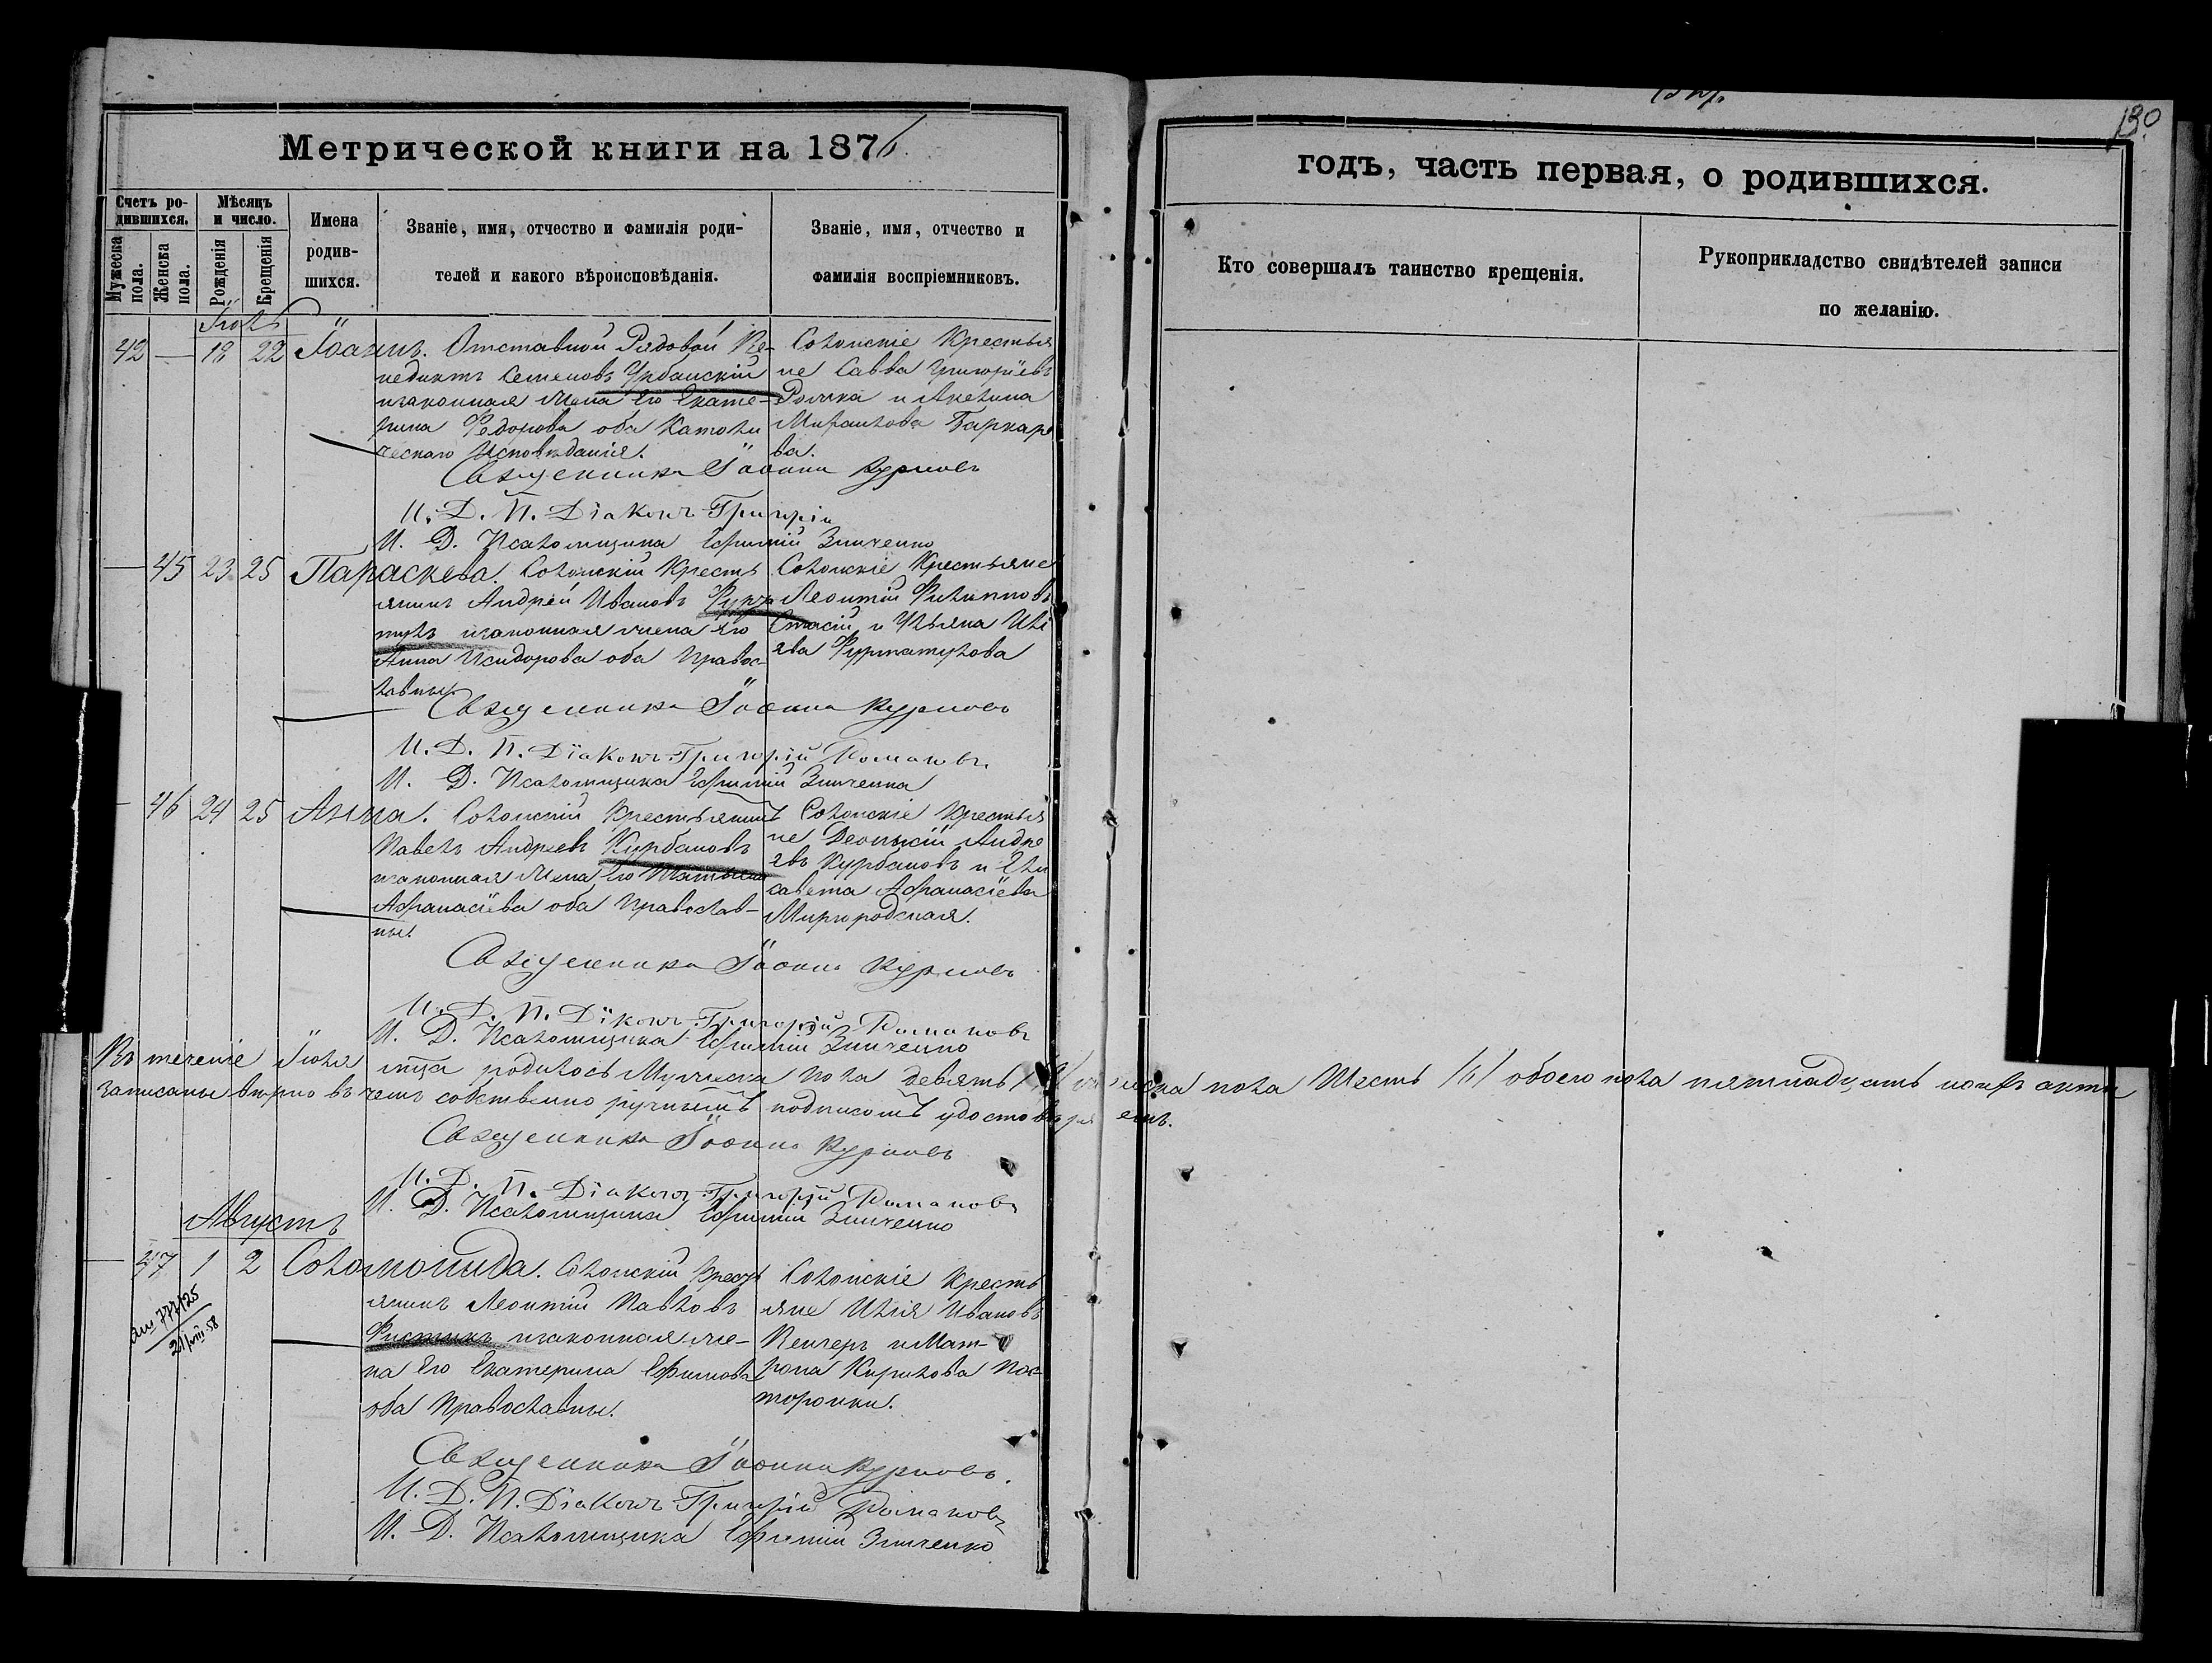 Метрической книги на 1876
годъ, часть первая, о родившихся.
130
Счетъ ро-
дившихся.
Мужеска пола.
Женска пола.
Мѣсяцъ
и число.
Рожденія
Крещенія
Имена
родив-
шихся.
Званіе, имя, отчество и фамилія роди-
телей и какого вѣроисповѣданія.
Званіе, имя, отчество и
фамилія воспріемниковъ.
Кто совершалъ таинство крещенія.
Рукоприкладство свидѣтелей записи
по желанію.
42 — 18 22 Іоаннъ. Отставной Рядовой Ве-
недиктъ Семеновъ Урбанскій
и законная жена Его Екате-
рина Федорова оба Католи
ческаго Исповѣданія.
Солонскіе Крестья
не Савва Григоріевъ
и Акелина
Михаилова
ва.
Священникъ Іоаннъ Курновъ
И. Д. П. Діаконъ Григорій
И. Д. Псаломщика Ефимій Зинченко
— 45 23 25 Параскева. Солонскій Кресть
янинъ Андрей Ивановъ
и законная жена Его
Анна Исидорова оба Правос
лавные.
Солонскіе Крестьяне
Леонтій Филипповъ
Стасій и Ульяна Илі
ева Фуртатулова
Священникъ Іоаннъ Курновъ
И. Д. П. Діаконъ Григорій Романовъ
И. Д. Псаломщика Ефимій Зинченко
— 46 24 25 Анна. Солонскій Крестьянинъ
Павелъ Андреевъ Курбановъ
и законная жена Его Татьяна
Афанасіева оба Православ-
ные.
Солонскіе Крестья
не Деонисій Андре
евъ Курбановъ и Ели
савета Афанасіева
Миргородская.
Священникъ Іоаннъ Курновъ
И. Д. П. Діконъ Григорій Романовъ
И. Д. Псаломщика Ефимій Зинченко
Въ теченіе Іюля мца родилось Мужеска пола девять женска пола Шесть /6/ обоего пола пятнадцать коихъ акты
записаны вѣрно въ чемъ собственно ручнымъ подписомъ удостовѣряемъ.
Священникъ Іоаннъ Курновъ
И. Д. П. Діаконъ Григорій Романовъ
И. Д. Псаломщика Ефимій Зинченко
Августъ
— 47 1 2 Соломонида. Солонскій Кресть
янинъ Леонтій Павловъ
Фистикъ и законная же-
на Его Екатерина Ефимова
оба Православные.
Солонскіе Кресть
яне Илія Ивановъ
Венгеръ и Мат-
рона Кирилова Пос-
торонки.
777/25
21/VIII-58
Священникъ Іоаннъ Курновъ.
И. Д. П. Діаконъ Григорій Романовъ
И. Д. Псаломщика Ефимій Зинченко